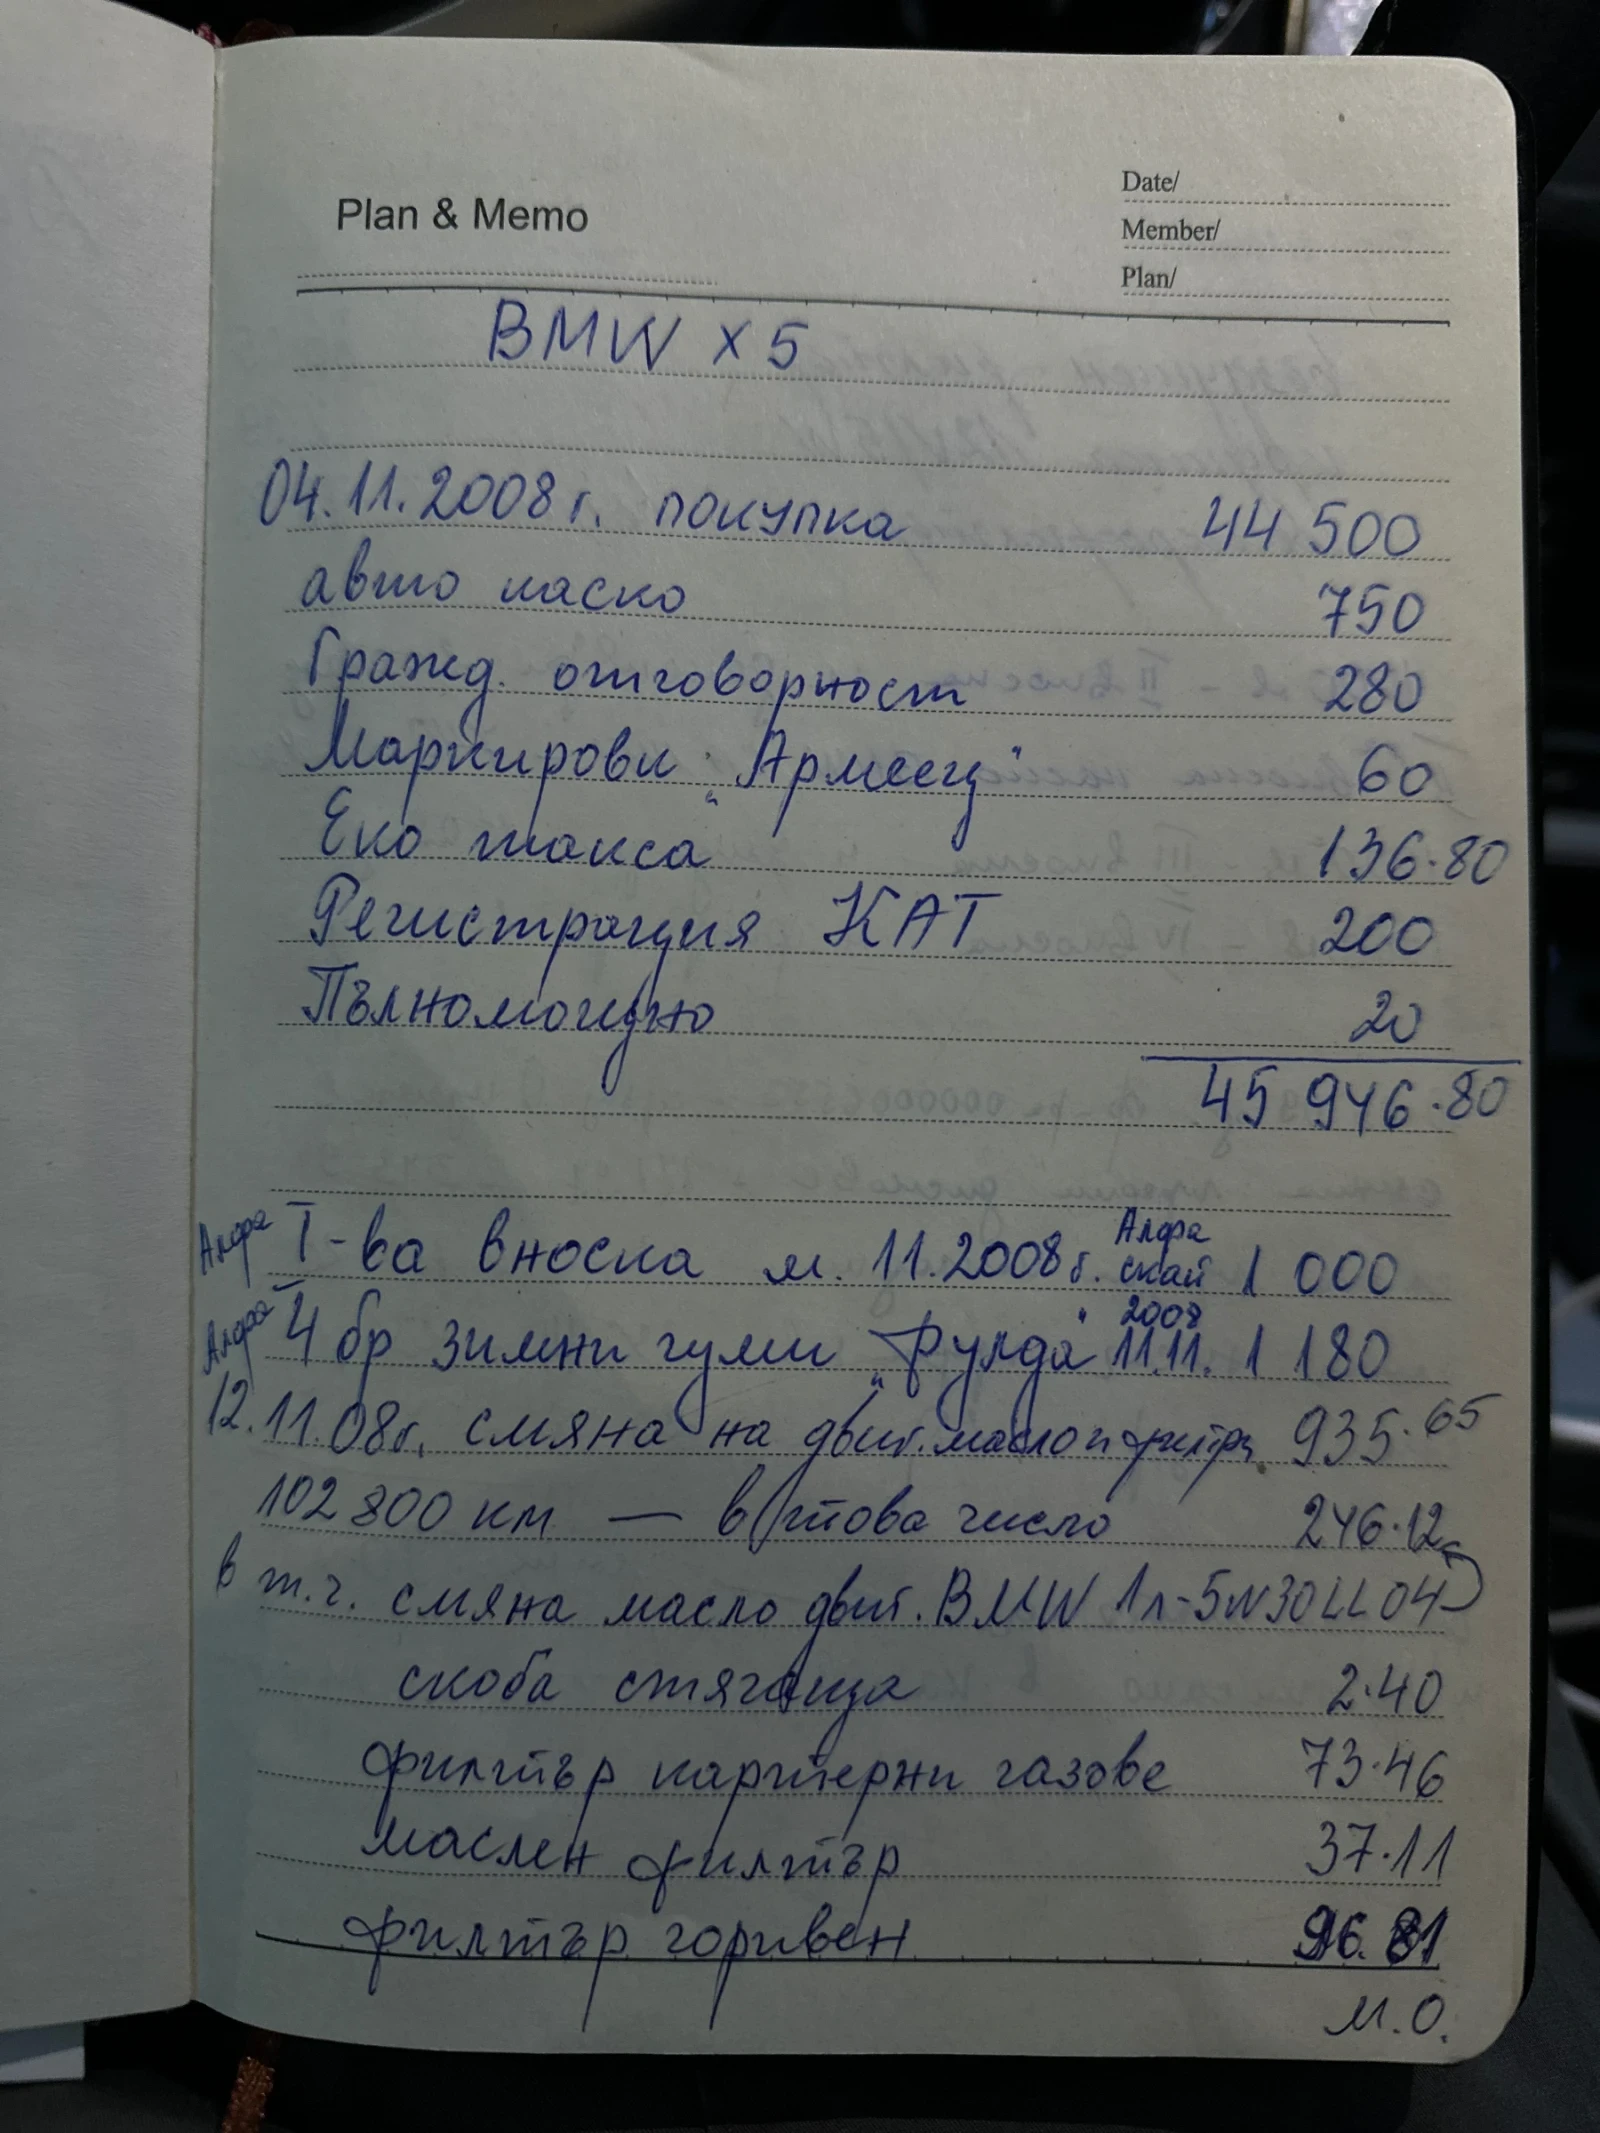 Plan & Memo
Date/
Member/
Plan/
BMW X5
04.11.2008 г. покупка 44 500
авто каско 750
Гражд. отговорност 280
Маркировки „Армеец" 60
Еко такса 136.80
Регистрация КАТ 200
Пълномощно 20
45 946.80
Алфа I-ва вноска м. 11.2008 г. Алфа скай 1 000
Алфа 4 бр зимни гуми „Фулда" 11.11. 2008 1 180
12.11.08 г. смяна на двиг. масло и филтри 935.65
102 800 км — в това число 246.12
в т.ч. смяна масло двиг. BMW 1л-5W30LL04
скоба стягаща 2.40
филтър картерни газове 73.46
маслен филтър 37.11
филтър горивен 96.81
м.о.